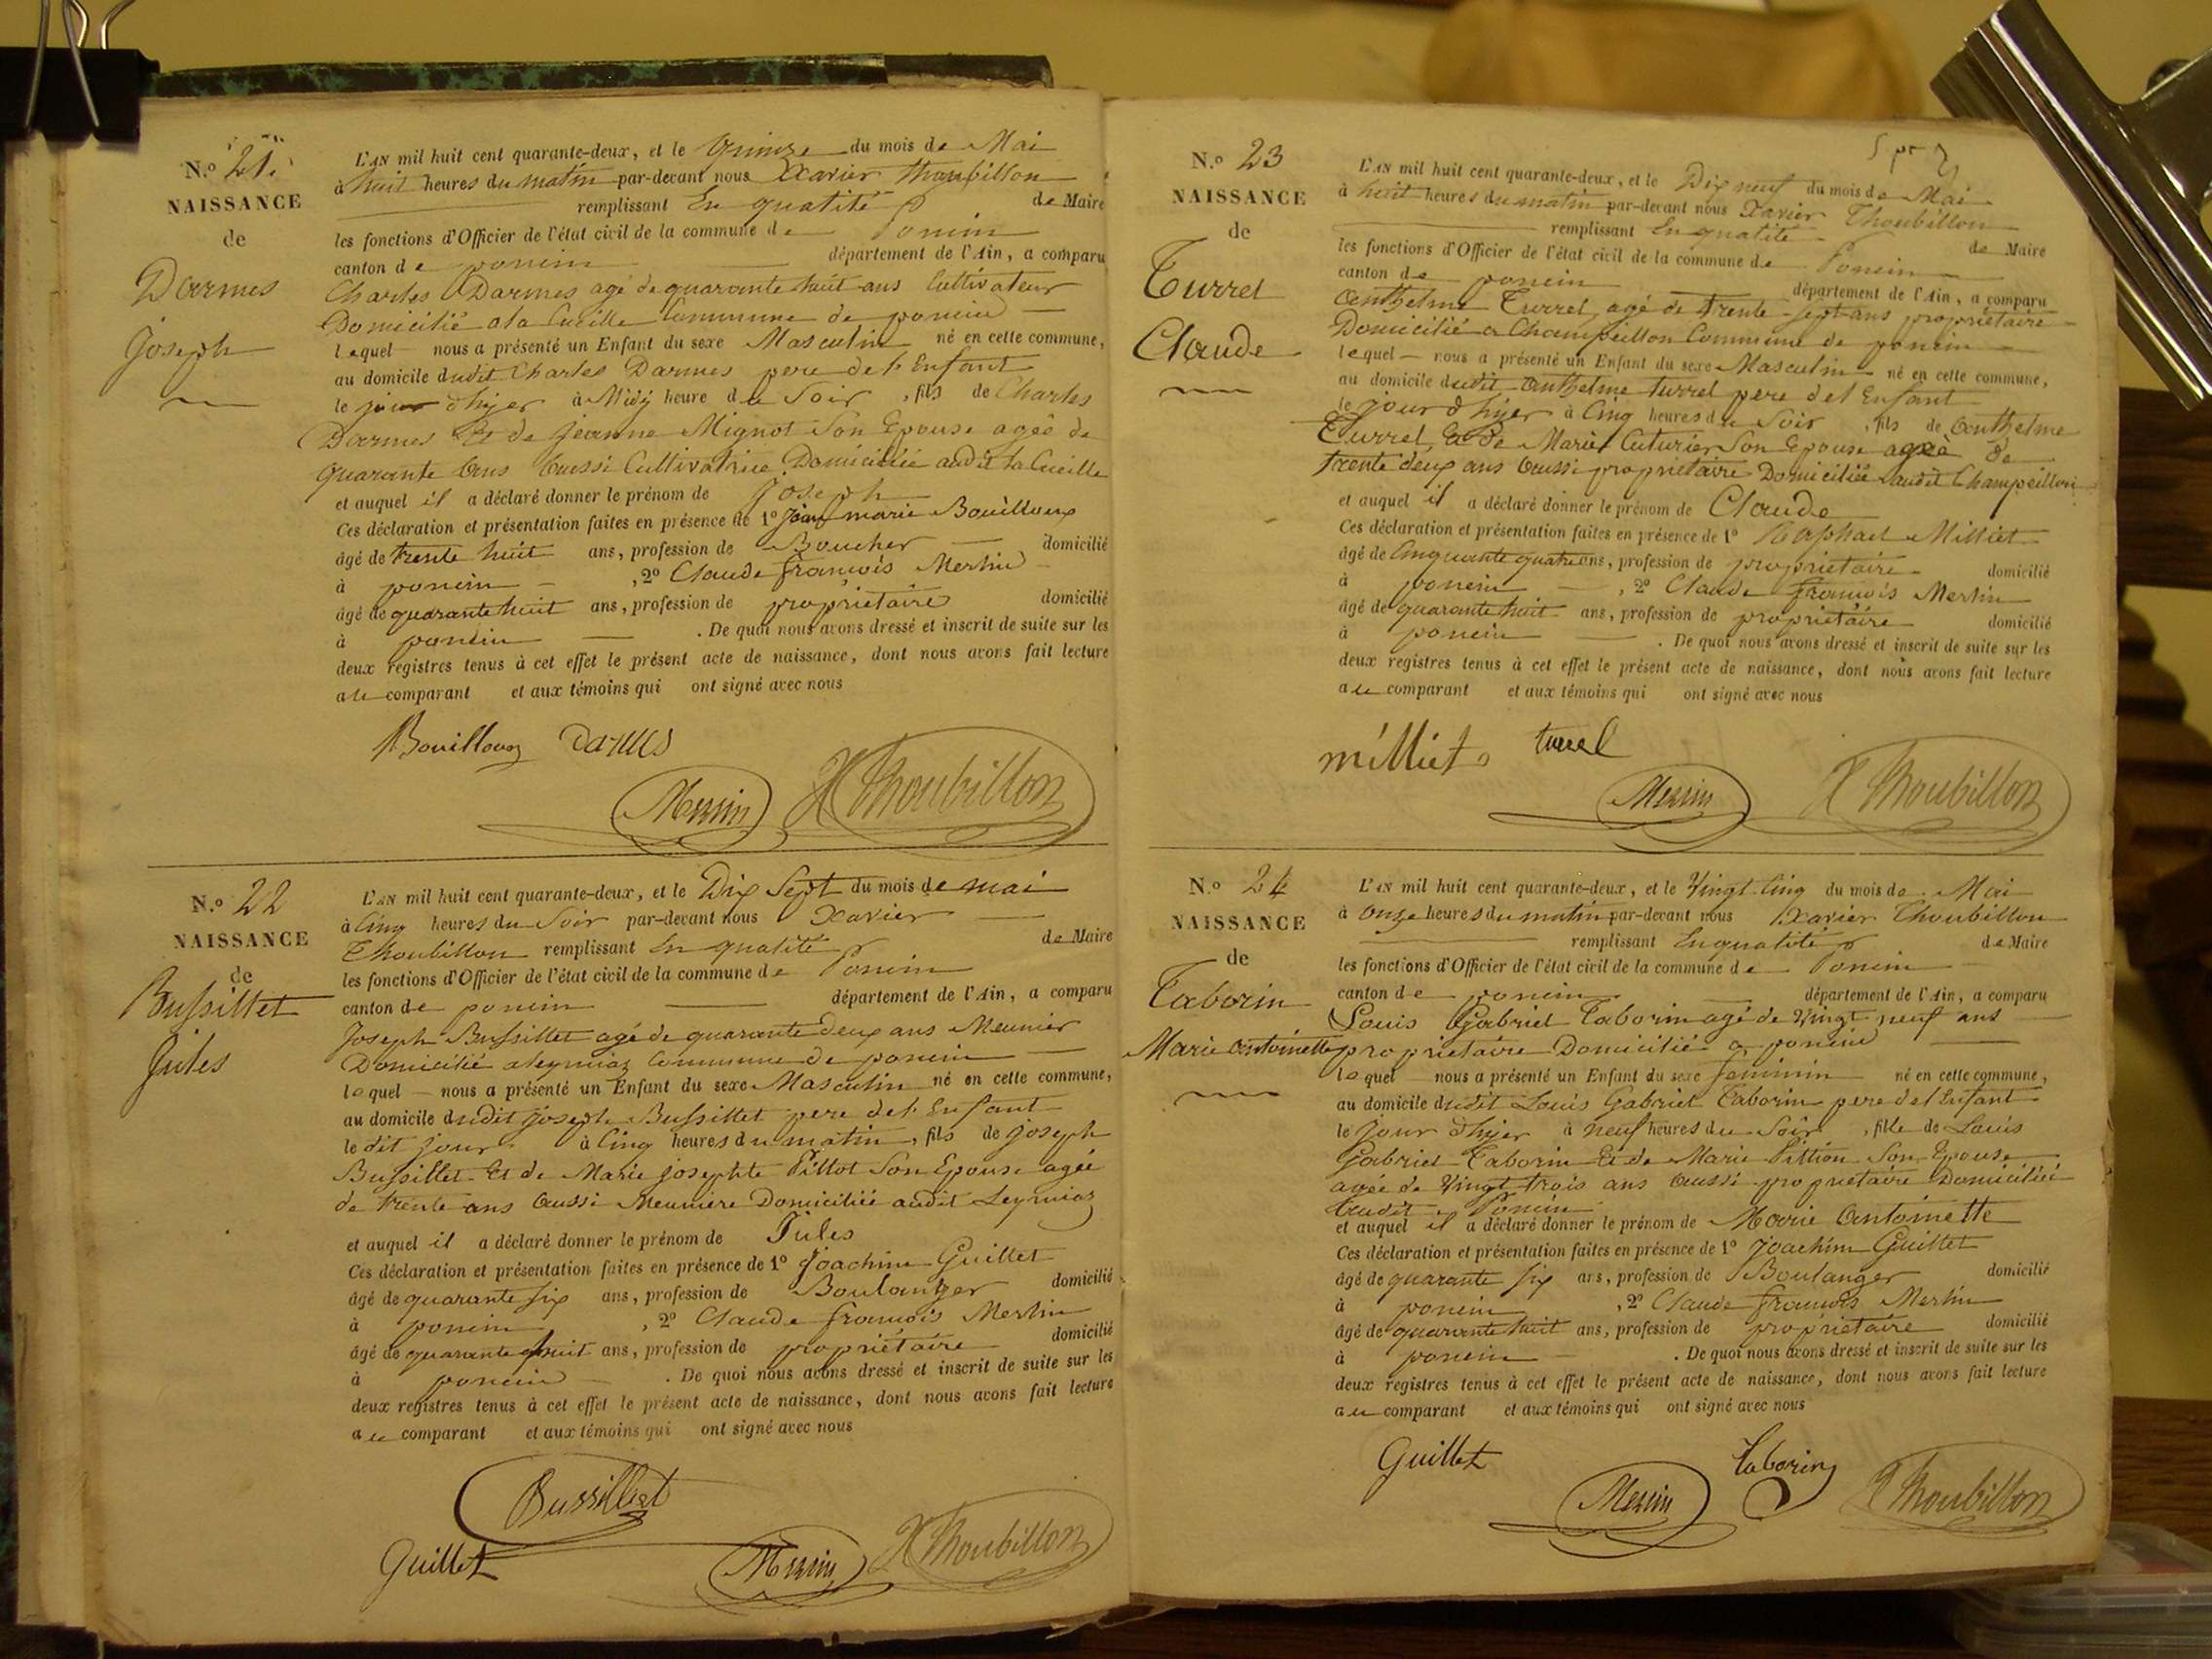 N.º 21.
NAISSANCE
de
Darmes
Joseph
L'AN mil huit cent quarante-deux, et le quinze du mois de Mai
à huit heures du matin par-devant nous Xavier Thoubillon
remplissant En qualité de Maire
les fonctions d'Officier de l'état civil de la commune de Poncin
canton de poncin département de l'Ain, a comparu
Charles Darmes agé de quarante huit ans Cultivateur
Domicilié a la Cueille Commune de poncin
lequel nous a présenté un Enfant du sexe Masculin né en cette commune,
au domicile dudit Charles Darmes pere de l'Enfant
le jour d'hyer à Midy heure du Soir, fils de Charles
Darmes Et de Jeanne Mignot Son Epouse agée de
quarante Ans Aussi Cultivatrice Domiciliée audit la Cueille
et auquel il a déclaré donner le prénom de Joseph
Ces déclaration et présentation faites en présence de 1º Jean marie Bouilloux
âgé de trente huit ans, profession de Boucher domicilié
à poncin, 2º Claude françois Merlin
âgé de quarante huit ans, profession de propriétaire domicilié
à poncin. De quoi nous avons dressé et inscrit de suite sur les
deux registres tenus à cet effet le présent acte de naissance, dont nous avons fait lecture
au comparant et aux témoins qui ont signé avec nous
Bouilloux Darmes
Merlin X Thoubillon
N.º 22
NAISSANCE
de
Bussillet
Jules
L'AN mil huit cent quarante-deux, et le Dix Sept du mois de mai
à Cinq heures du Soir par-devant nous Xavier
Thoubillon remplissant En qualité de Maire
les fonctions d'Officier de l'état civil de la commune de Poncin
canton de poncin département de l'Ain, a comparu
Joseph Bussillet agé de quarante deux ans Meunier
Domicilié a leymiaz Commune de poncin
lequel nous a présenté un Enfant du sexe Masculin né en cette commune,
au domicile dudit joseph Bussillet pere de l'Enfant
le dit jour à Cinq heures du matin, fils de joseph
Bussillet Et de Marie josephte Pittot Son Epouse agée
de trente ans Aussi Meuniere Domiciliée audit Leymiaz
et auquel il a déclaré donner le prénom de Jules
Ces déclaration et présentation faites en présence de 1º Joachim Guillet
âgé de quarante six ans, profession de Boulanger domicilié
à poncin, 2º Claude françois Merlin
âgé de quarante huit ans, profession de propriétaire domicilié
à poncin. De quoi nous avons dressé et inscrit de suite sur les
deux registres tenus à cet effet le présent acte de naissance, dont nous avons fait lecture
au comparant et aux témoins qui ont signé avec nous
Bussillet
Guillet Merlin X Thoubillon
N.º 23
NAISSANCE
de
Turrel
Claude
L'AN mil huit cent quarante-deux, et le Dix neuf du mois de Mai
à huit heures du matin par-devant nous Xavier Thoubillon
remplissant En qualité de Maire
les fonctions d'Officier de l'état civil de la commune de Poncin
canton de poncin département de l'Ain, a comparu
Anthelme Turrel, agé de Trente Sept ans propriétaire
Domicilié a Champeillon Commune de poncin
lequel nous a présenté un Enfant du sexe Masculin né en cette commune,
au domicile dudit Anthelme turrel pere de l'Enfant
le jour d'hyer à Cinq heures du Soir, fils de Anthelme
Turrel, Et De Marie Cuturier Son Epouse agée de
trente deux ans Aussi propriétaire Domiciliée audit Champeillon
et auquel il a déclaré donner le prénom de Claude
Ces déclaration et présentation faites en présence de 1º Raphael Milliet
âgé de Cinquante quatre ans, profession de propriétaire domicilié
à poncin, 2º Claude françois Merlin
âgé de quarante huit ans, profession de propriétaire domicilié
à poncin. De quoi nous avons dressé et inscrit de suite sur les
deux registres tenus à cet effet le présent acte de naissance, dont nous avons fait lecture
au comparant et aux témoins qui ont signé avec nous
milliet turrel
Merlin X Thoubillon
N.º 24
NAISSANCE
de
Taborin
Marie Antoinette
L'AN mil huit cent quarante-deux, et le Vingt Cinq du mois de Mai
à onze heures du matin par-devant nous Xavier Thoubillon
remplissant En qualité de Maire
les fonctions d'Officier de l'état civil de la commune de Poncin
canton de poncin département de l'Ain, a comparu
Louis Gabriel Taborin agé de Vingt neuf ans
propriétaire Domicilié a poncin
lequel nous a présenté un Enfant du sexe feminin né en cette commune,
au domicile dudit Louis Gabriel Taborin pere de l'Enfant
le jour d'hyer à neuf heures du Soir, fille de Louis
Gabriel Taborin Et de Marie Pittion Son Epouse
agée de Vingt trois ans Aussi propriétaire Domiciliée
audit Poncin
et auquel il a déclaré donner le prénom de Marie Antoinette
Ces déclaration et présentation faites en présence de 1º Joachim Guillet
âgé de quarante six ans, profession de Boulanger domicilié
à poncin, 2º Claude françois Merlin
âgé de quarante huit ans, profession de propriétaire domicilié
à poncin. De quoi nous avons dressé et inscrit de suite sur les
deux registres tenus à cet effet le présent acte de naissance, dont nous avons fait lecture
au comparant et aux témoins qui ont signé avec nous
Guillet Taborin
Merlin X Thoubillon